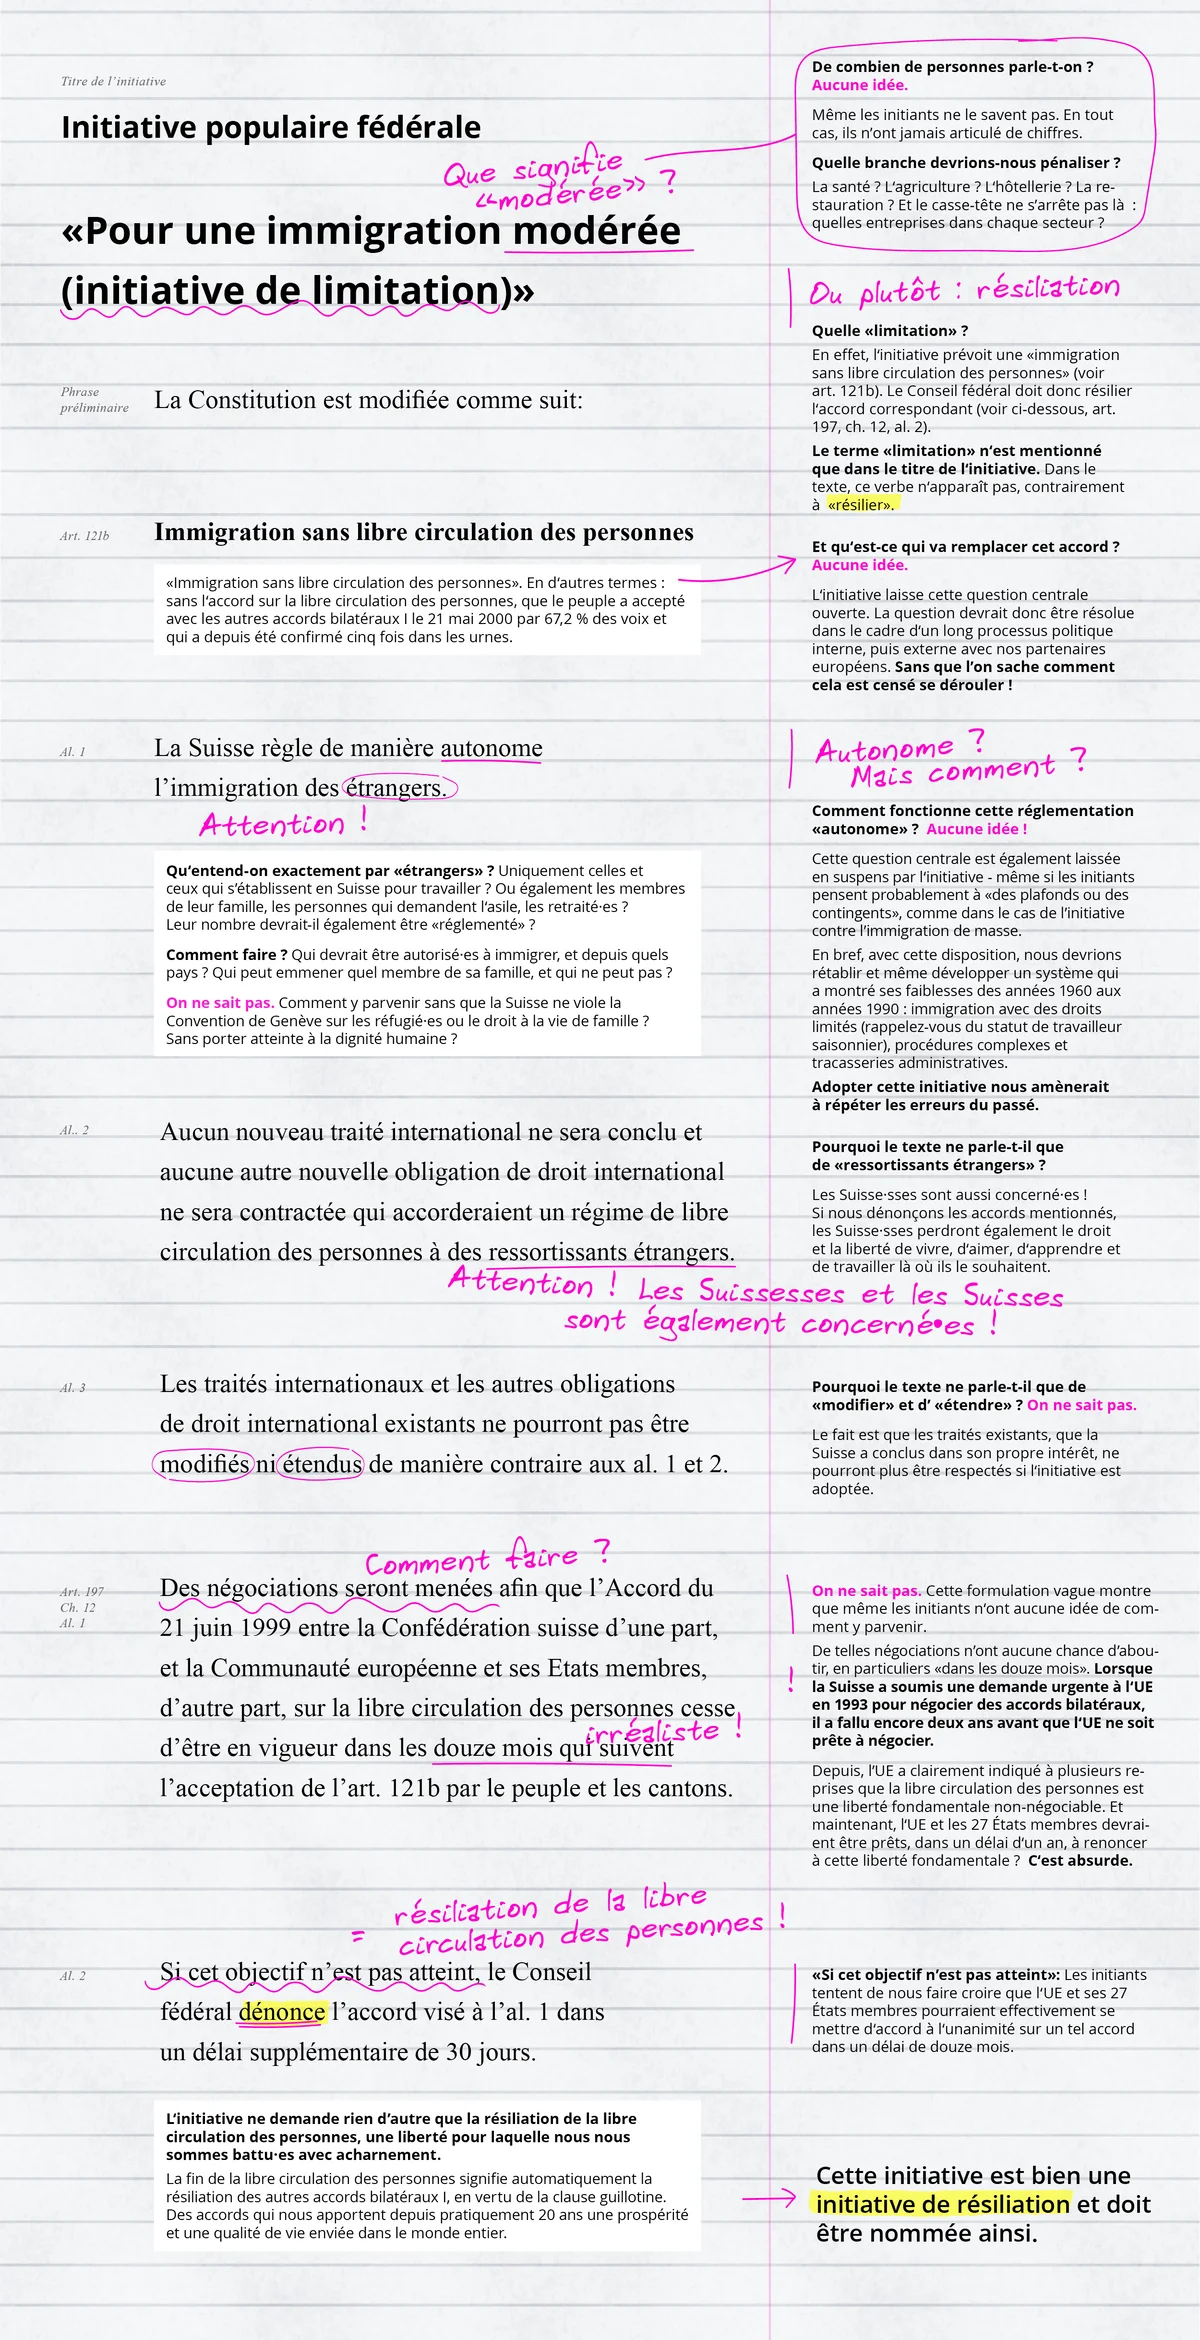 Titre de l'initiative
Initiative populaire fédérale
Que signifie
«modérée» ?
«Pour une immigration modérée
(initiative de limitation)»
De combien de personnes parle-t-on ?
Aucune idée.
Même les initiants ne le savent pas. En tout
cas, ils n'ont jamais articulé de chiffres.
Quelle branche devrions-nous pénaliser ?
La santé ? L'agriculture ? L'hôtellerie ? La re-
stauration ? Et le casse-tête ne s'arrête pas là :
quelles entreprises dans chaque secteur ?
Ou plutôt : résiliation
Quelle «limitation» ?
En effet, l'initiative prévoit une «immigration
sans libre circulation des personnes» (voir
art. 121b). Le Conseil fédéral doit donc résilier
l'accord correspondant (voir ci-dessous, art.
197, ch. 12, al. 2).
Le terme «limitation» n'est mentionné
que dans le titre de l'initiative. Dans le
texte, ce verbe n'apparaît pas, contrairement
à «résilier».
Phrase
préliminaire
La Constitution est modifiée comme suit:
Art. 121b
Immigration sans libre circulation des personnes
«Immigration sans libre circulation des personnes». En d'autres termes :
sans l'accord sur la libre circulation des personnes, que le peuple a accepté
avec les autres accords bilatéraux I le 21 mai 2000 par 67,2 % des voix et
qui a depuis été confirmé cinq fois dans les urnes.
Et qu'est-ce qui va remplacer cet accord ?
Aucune idée.
L'initiative laisse cette question centrale
ouverte. La question devrait donc être résolue
dans le cadre d'un long processus politique
interne, puis externe avec nos partenaires
européens. Sans que l'on sache comment
cela est censé se dérouler !
Al. 1
La Suisse règle de manière autonome
l'immigration des étrangers.
Attention !
Qu'entend-on exactement par «étrangers» ? Uniquement celles et
ceux qui s'établissent en Suisse pour travailler ? Ou également les membres
de leur famille, les personnes qui demandent l'asile, les retraité·es ?
Leur nombre devrait-il également être «réglementé» ?
Comment faire ? Qui devrait être autorisé·es à immigrer, et depuis quels
pays ? Qui peut emmener quel membre de sa famille, et qui ne peut pas ?
On ne sait pas. Comment y parvenir sans que la Suisse ne viole la
Convention de Genève sur les réfugié·es ou le droit à la vie de famille ?
Sans porter atteinte à la dignité humaine ?
Autonome ?
Mais comment ?
Comment fonctionne cette réglementation
«autonome» ? Aucune idée !
Cette question centrale est également laissée
en suspens par l'initiative - même si les initiants
pensent probablement à «des plafonds ou des
contingents», comme dans le cas de l'initiative
contre l'immigration de masse.
En bref, avec cette disposition, nous devrions
rétablir et même développer un système qui
a montré ses faiblesses des années 1960 aux
années 1990 : immigration avec des droits
limités (rappelez-vous du statut de travailleur
saisonnier), procédures complexes et
tracasseries administratives.
Adopter cette initiative nous amènerait
à répéter les erreurs du passé.
Al.. 2
Aucun nouveau traité international ne sera conclu et
aucune autre nouvelle obligation de droit international
ne sera contractée qui accorderaient un régime de libre
circulation des personnes à des ressortissants étrangers.
Pourquoi le texte ne parle-t-il que
de «ressortissants étrangers» ?
Les Suisse·sses sont aussi concerné·es !
Si nous dénonçons les accords mentionnés,
les Suisse·sses perdront également le droit
et la liberté de vivre, d'aimer, d'apprendre et
de travailler là où ils le souhaitent.
Attention ! Les Suissesses et les Suisses
sont également concerné•es !
Al. 3
Les traités internationaux et les autres obligations
de droit international existants ne pourront pas être
modifiés ni étendus de manière contraire aux al. 1 et 2.
Pourquoi le texte ne parle-t-il que de
«modifier» et d' «étendre» ? On ne sait pas.
Le fait est que les traités existants, que la
Suisse a conclus dans son propre intérêt, ne
pourront plus être respectés si l'initiative est
adoptée.
Comment faire ?
Art. 197
Ch. 12
Al. 1
Des négociations seront menées afin que l'Accord du
21 juin 1999 entre la Confédération suisse d'une part,
et la Communauté européenne et ses Etats membres,
d'autre part, sur la libre circulation des personnes cesse
irréaliste !
d'être en vigueur dans les douze mois qui suivent
l'acceptation de l'art. 121b par le peuple et les cantons.
On ne sait pas. Cette formulation vague montre
que même les initiants n'ont aucune idée de com-
ment y parvenir.
!
De telles négociations n'ont aucune chance d'abou-
tir, en particuliers «dans les douze mois». Lorsque
la Suisse a soumis une demande urgente à l'UE
en 1993 pour négocier des accords bilatéraux,
il a fallu encore deux ans avant que l'UE ne soit
prête à négocier.
Depuis, l'UE a clairement indiqué à plusieurs re-
prises que la libre circulation des personnes est
une liberté fondamentale non-négociable. Et
maintenant, l'UE et les 27 États membres devrai-
ent être prêts, dans un délai d'un an, à renoncer
à cette liberté fondamentale ? C'est absurde.
résiliation de la libre
= circulation des personnes !
Al. 2
Si cet objectif n'est pas atteint, le Conseil
fédéral dénonce l'accord visé à l'al. 1 dans
un délai supplémentaire de 30 jours.
«Si cet objectif n'est pas atteint»: Les initiants
tentent de nous faire croire que l'UE et ses 27
États membres pourraient effectivement se
mettre d'accord à l'unanimité sur un tel accord
dans un délai de douze mois.
L'initiative ne demande rien d'autre que la résiliation de la libre
circulation des personnes, une liberté pour laquelle nous nous
sommes battu·es avec acharnement.
La fin de la libre circulation des personnes signifie automatiquement la
résiliation des autres accords bilatéraux I, en vertu de la clause guillotine.
Des accords qui nous apportent depuis pratiquement 20 ans une prospérité
et une qualité de vie enviée dans le monde entier.
Cette initiative est bien une
initiative de résiliation et doit
être nommée ainsi.